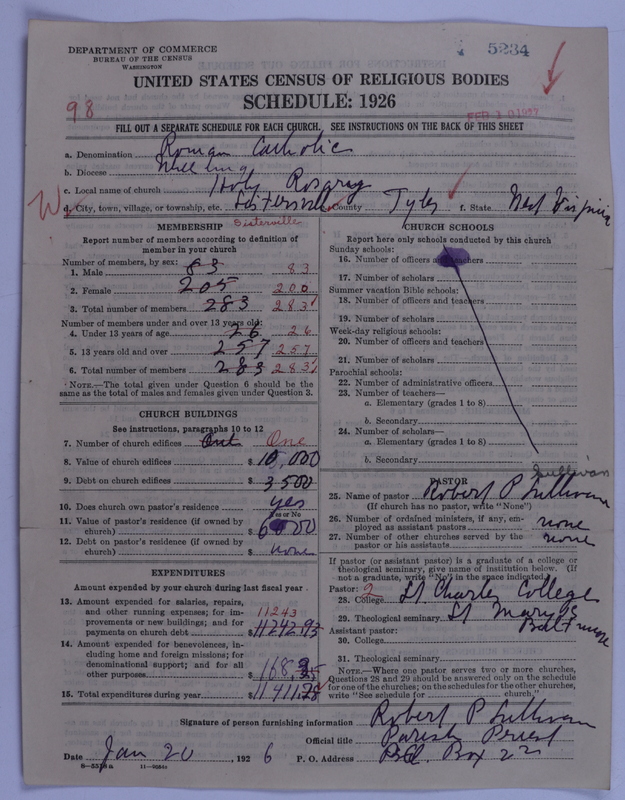 5234
DEPARTMENT OF COMMERCE
BUREAU OF THE CENSUS
WASHINGTON
UNITED STATES CENSUS OF RELIGIOUS BODIES
SCHEDULE: 1926
98
FEB 10 1927
FILL OUT A SEPARATE SCHEDULE FOR EACH CHURCH. SEE INSTRUCTIONS ON THE BACK OF THIS SHEET
a. Denomination Roman Catholic
b. Diocese Wheeling
c. Local name of church Holy Rosary
d. City, town, village, or township, etc. Sistersville County Tyler f. State West Virginia
Sisterville
MEMBERSHIP
Report number of members according to definition of
member in your church
Number of members, by sex:
1. Male 83 83
2. Female 205 200
3. Total number of members 283 283
Number of members under and over 13 years old:
4. Under 13 years of age 26 26
5. 13 years old and over 257 257
6. Total number of members 283 283
NOTE.—The total given under Question 6 should be the
same as the total of males and females given under Question 3.
CHURCH BUILDINGS
See instructions, paragraphs 10 to 12
7. Number of church edifices One
8. Value of church edifices $ 10,000
9. Debt on church edifices $ 3500
10. Does church own pastor's residence? yes
Yes or No
11. Value of pastor's residence (if owned by
church) $ 6000
12. Debt on pastor's residence (if owned by
church) $ none
EXPENDITURES
Amount expended by your church during last fiscal year.
13. Amount expended for salaries, repairs,
and other running expenses; for im-
provements or new buildings; and for
payments on church debt $ 11242.93
11243
14. Amount expended for benevolences, in-
cluding home and foreign missions; for
denominational support; and for all
other purposes $
15. Total expenditures during year $
CHURCH SCHOOLS
Report here only schools conducted by this church
Sunday schools:
16. Number of officers and teachers
17. Number of scholars
Summer vacation Bible schools:
18. Number of officers and teachers
19. Number of scholars
Week-day religious schools:
20. Number of officers and teachers
21. Number of scholars
Parochial schools:
22. Number of administrative officers
23. Number of teachers—
a. Elementary (grades 1 to 8)
b. Secondary
24. Number of scholars—
a. Elementary (grades 1 to 8)
b. Secondary
PASTOR
Sullivan
25. Name of pastor Robert P Sullivan
(If church has no pastor, write "None")
26. Number of ordained ministers, if any, em-
ployed as assistant pastors none
27. Number of other churches served by the
pastor or his assistants none
If pastor (or assistant pastor) is a graduate of a college or
theological seminary, give name of institution below. (If
not a graduate, write "No" in the space indicated.)
Pastor: 2
28. College St Charles College
29. Theological seminary St Mary's
Baltimore
Assistant pastor:
30. College
31. Theological seminary
NOTE.—Where one pastor serves two or more churches,
Questions 28 and 29 should be answered only on the schedule
for one of the churches; on the schedules for the other churches,
write "See schedule for church."
Signature of person furnishing information Robert P Sullivan
Official title Parish Priest
Date Jan 20, 1926 P. O. Address Box 22
8-5518a 11-9684a